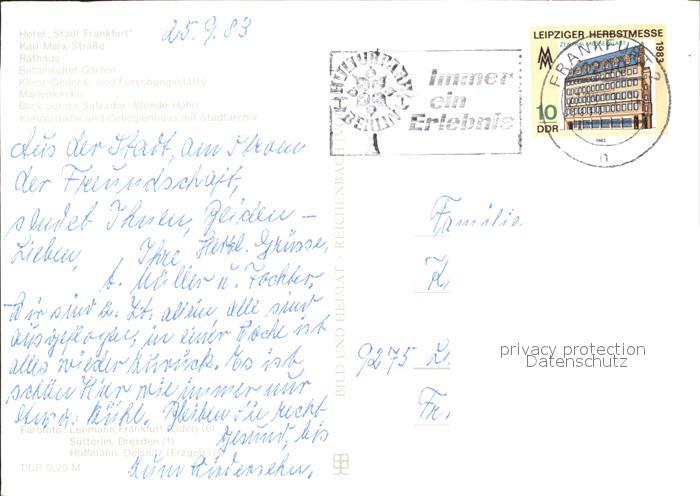 Hotel „Stadt Frankfurt"
Karl-Marx-Straße
Rathaus
Botanischer Garten
Kleist-Gedenk- und Forschungsstätte
Marienkirche
Blick auf die Salvador-Allende-Höhe
Konzerthalle und Collegienhaus mit Stadtarchiv
25.9.83
Aus der Stadt, am Strom
der Freundschaft,
sendet Ihnen, Beiden –
Lieben, Herzl. Grüsse,
Ihre
t. Müller u. Tochter.
Wir sind z. Zt. allein alle sind
ausgeflogen, in einer Woche ist
alles wieder zurück. Es ist
schön Hier wie immer nur
etwas kühl. Bleiben Sie recht
gesund, bis
zum Wiedersehn.
Farbfotos: Lehmann, Frankfurt (Oder) (6)
Sütterlin, Dresden (1)
Hoffmann, Oelsnitz (Erzgeb.)
DDR 0,20 M
BILD UND HEIMAT · REICHENBACH
KULTURPARK
BERLIN
Immer
ein
Erlebnis
LEIPZIGER HERBSTMESSE
1983
10
DDR
1983
FRANKFURT
n
Familie
K.
9275
Fr.
privacy protection
Datenschutz